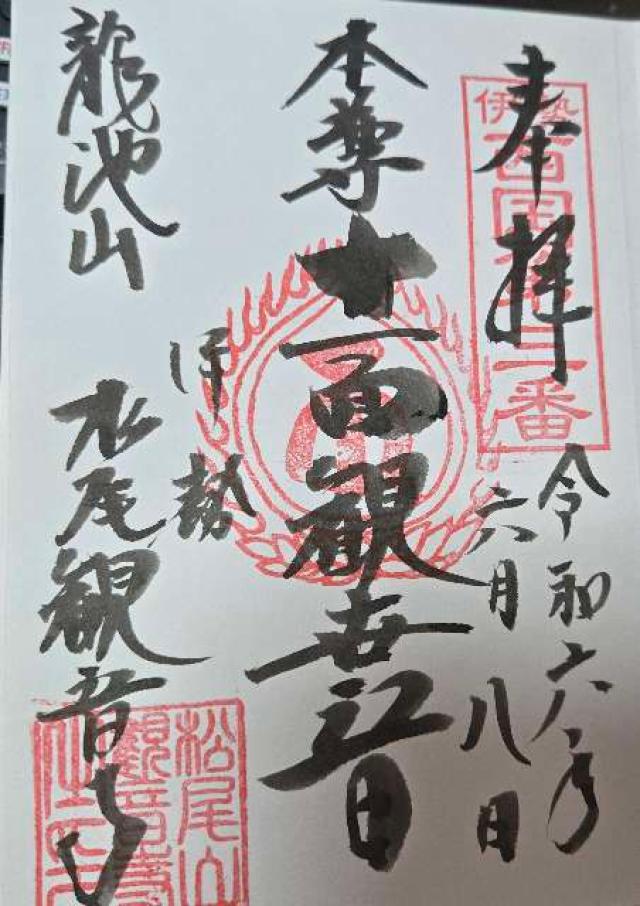 奉拝
伊勢西国第三番
令和六年
六月八日
本尊
十一面観世音
伊勢
龍池山
松尾観音寺
松尾山
観音寺